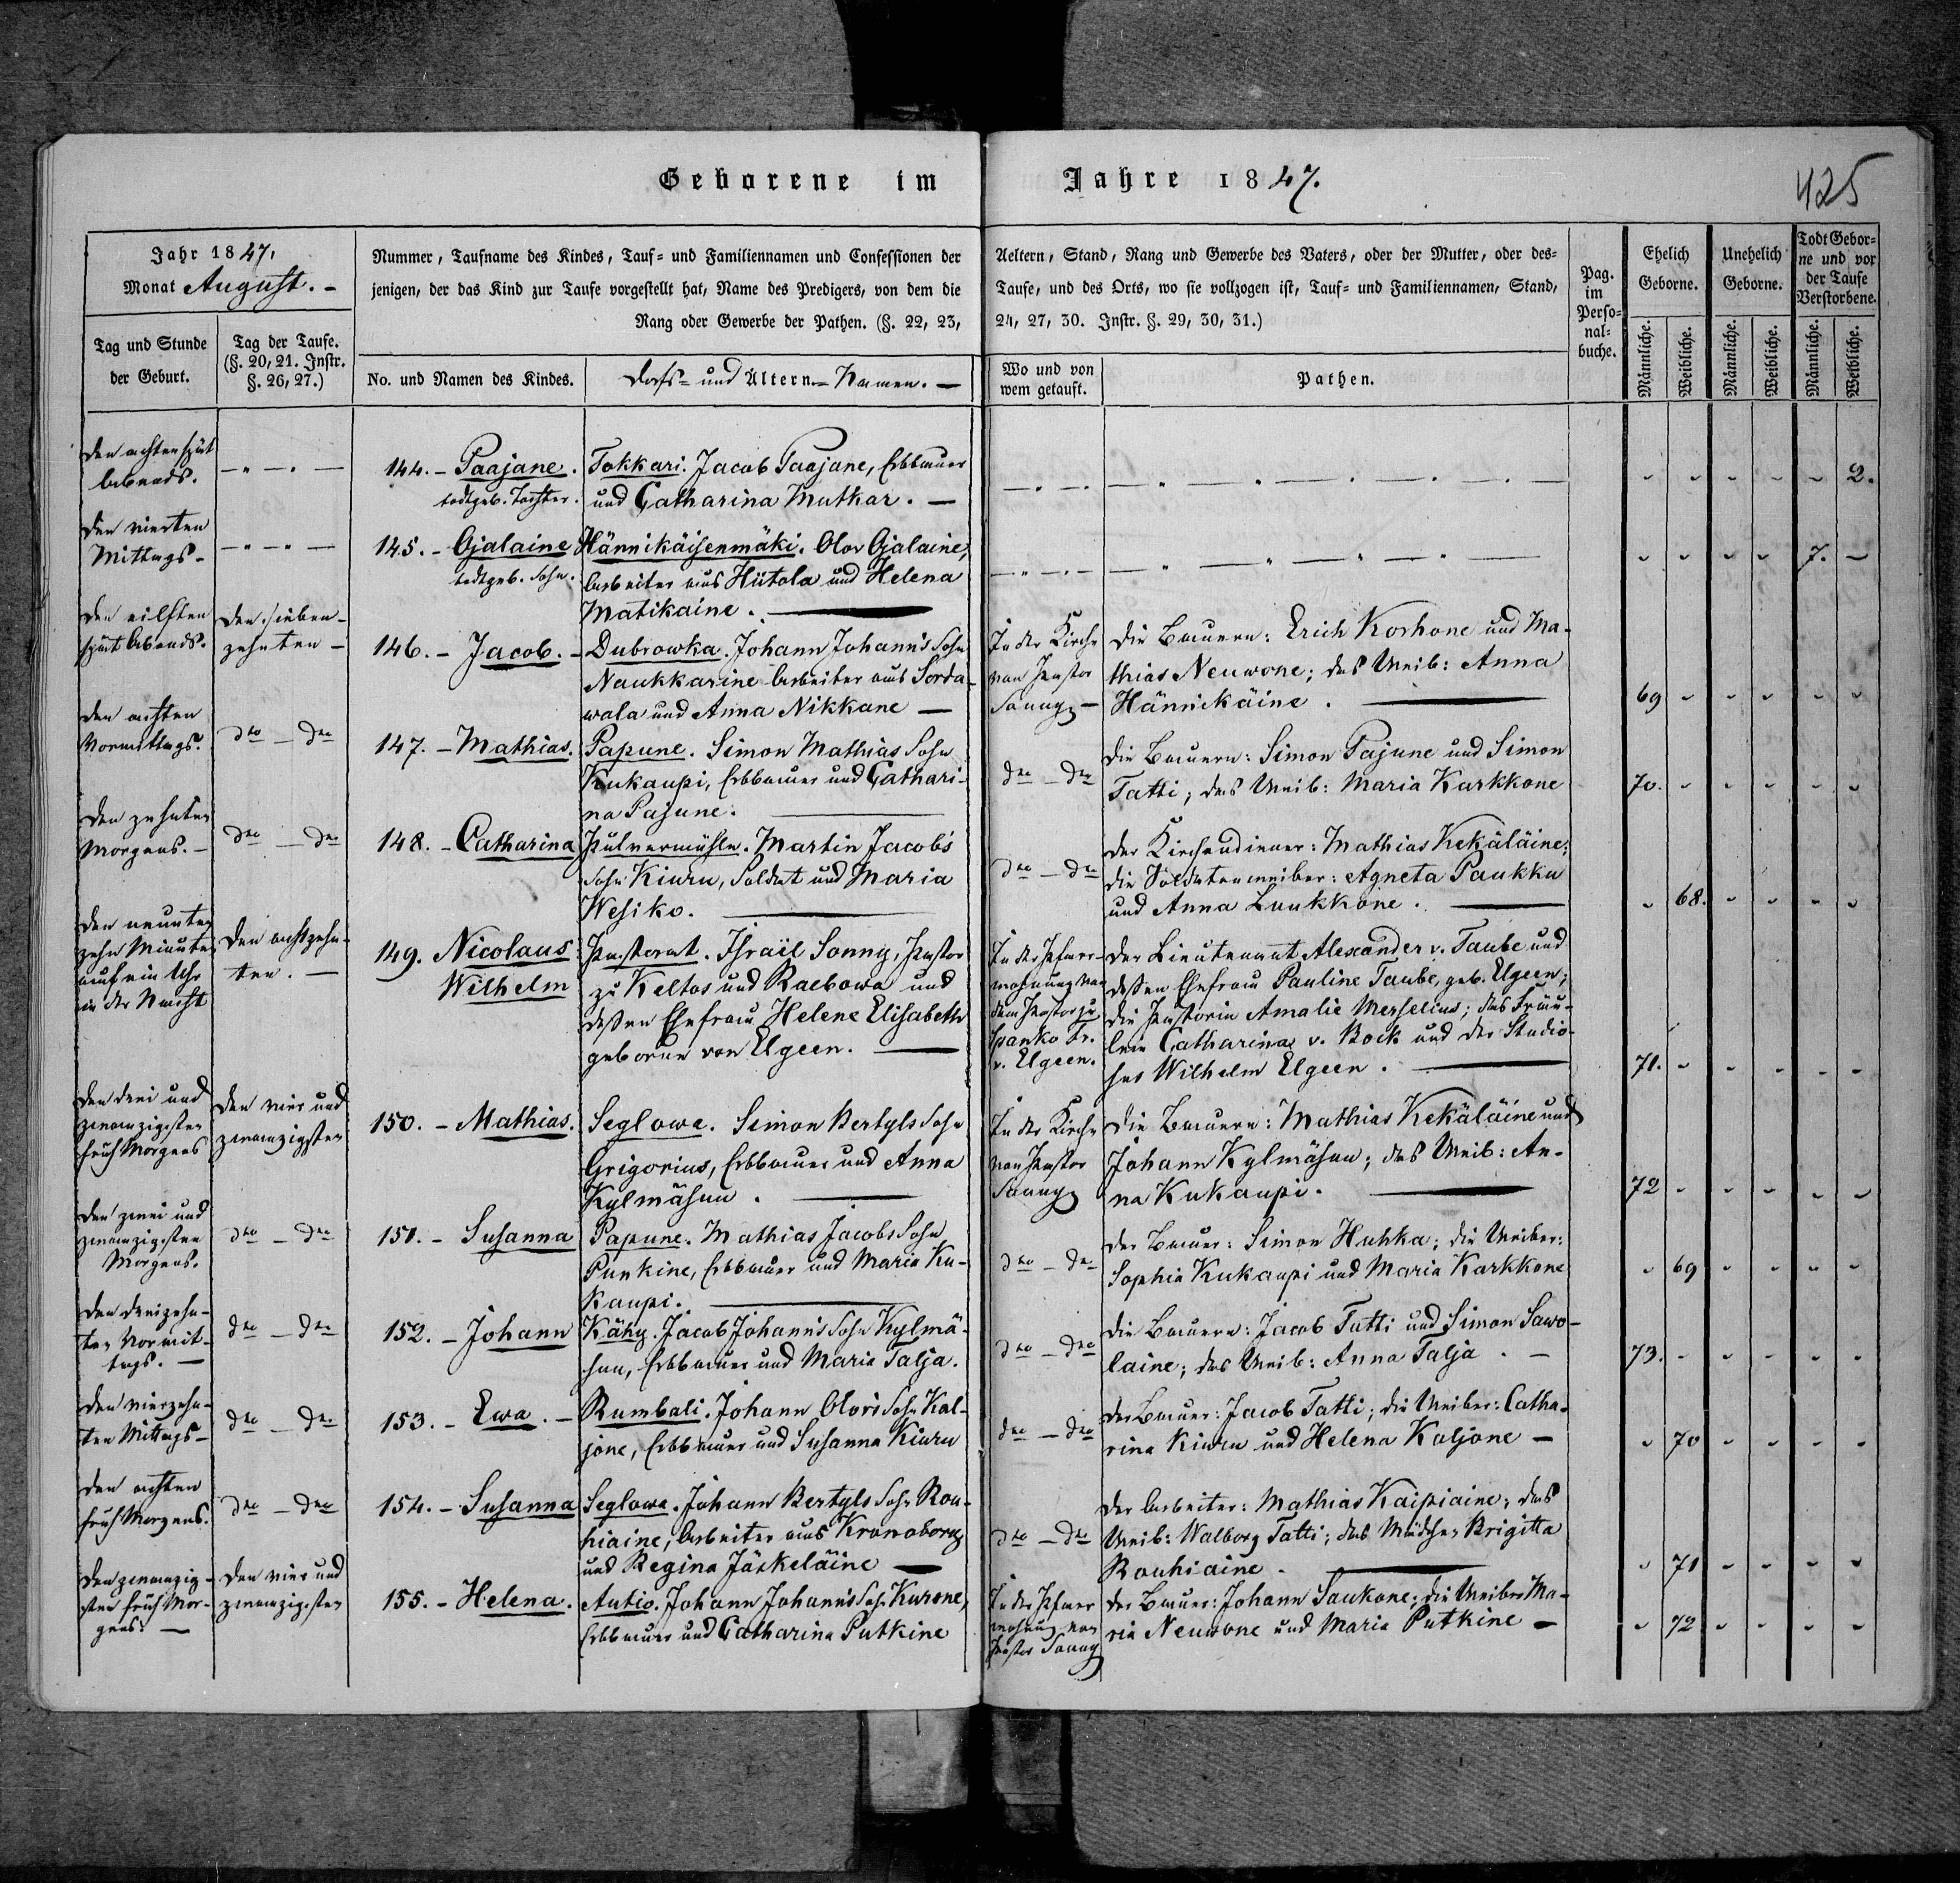 Geborene im Jahre 1847.
425
Jahr 1847,
Monat August. –
Tag und Stunde
der Geburt.
Tag der Taufe.
(§. 20, 21. Instr.
§. 26, 27.)
Nummer, Taufname des Kindes, Tauf- und Familiennamen und Confessionen der
jenigen, der das Kind zur Taufe vorgestellt hat, Name des Predigers, von dem die
Rang oder Gewerbe der Pathen. (§. 22, 23,
No. und Namen des Kindes.
Dorfs- und Ältern-Namen. –
Aeltern, Stand, Rang und Gewerbe des Vaters, oder der Mutter, oder des-
Taufe, und des Orts, wo sie vollzogen ist, Tauf- und Familiennamen, Stand,
24, 27, 30. Instr. §. 29, 30, 31.)
Wo und von
wem getauft.
Pathen.
Pag.
im
Perso-
nal-
buche.
Ehelich
Geborne.
Unehelich
Geborne.
Todt Gebor-
ne und vor
der Taufe
Verstorbene.
Männliche.
Weibliche.
Männliche.
Weibliche.
Männliche.
Weibliche.
den achten spät
Abends.
144. – Paajane.
todtgeb. Tochter.
Tokkari. Jacob Paajane, Erbbauer
und Catharina Mutkar. –
2.
den vierten
Mittags –
145. – Ojalaine
todtgeb. Sohn.
Hännikäisenmäki. Olov Ojalaine,
Arbeiter aus Hiitola und Helena
Matikaine. –
7. –
den eilften
spät Abends.
den sieben-
zehnten –
146. – Jacob. –
Dubrowka. Johann Johann's Sohn
Naukkarine Arbeiter aus Sorda-
wala und Anna Nikkane –
In der Kirche
von Pastor
Sonny –
die Bauern: Erich Korhone und Ma-
thias Neuwone; das Weib: Anna
Hännikäine. –
69
den achten
Vormittags.
dto – dto
147. – Mathias.
Papune. Simon Mathias Sohn
Kukaupi, Erbbauer und Cathari-
na Pajune.
dto – dto
die Bauern: Simon Pajune und Simon
Tatti; das Weib: Maria Karkkone
70.
den zehnten
Morgens. –
dto – dto
148. – Catharina
Pulvermühle. Martin Jacobs
Sohn Kiuru, Soldat und Maria
Wesiko.
dto – dto
der Kirchendiener: Mathias Kekäläine;
die Soldatenweiber: Agneta Paukku
und Anna Luukkone. –
68.
den neunten
zehn Minuten
auf ein Uhr
in der Nacht
den achtzehn-
ten. –
149. Nicolaus
Wilhelm
Pastorat. Israël Sonny, Pastor
zu Keltos und Raebowa und
dessen Ehefrau Helene Elisabeth
geborne von Elgeen. –
In der Pfarr-
wohnung von
dem Pastor zu
Spanko Fr.
v. Elgeen.
der Lieutenant Alexander v. Taube und
dessen Ehefrau Pauline Taube, geb. Elgeen;
die Pastorin Amalie Masselius; das Fräu-
lein Catharina v. Bock und der Studio-
sus Wilhelm Elgeen. –
71.
den drei und
zwanzigsten
früh Morgens
den vier und
zwanzigsten
150. – Mathias.
Seglowa. Simon Bertyls Sohn
Grigorius, Erbbauer und Anna
Kylmäsuu. –
In der Kirche
von Pastor
Sonny
die Bauern: Mathias Kekäläine und
Johann Kylmäsuu; das Weib: An-
na Kukaupi. –
72
den zwei und
zwanzigsten
Morgens.
dto – dto
151. – Susanna
Papune. Mathias Jacobs Sohn
Punkine, Erbbauer und Maria Ku-
kaupi. –
dto – dto
der Bauer: Simon Huhka; die Weiber:
Sophia Kukaupi und Maria Karkkone
69
den dreizehn-
ten Vormit-
tags. –
dto – dto
152. – Johann
Kähy. Jacob Johann's Sohn Kylmä-
suu, Erbbauer und Maria Talja.
dto – dto
die Bauern: Jacob Tatti und Simon Sawo-
laine; das Weib: Anna Talja. –
73.
den vierzehn-
ten Mittags –
dto – dto
153. – Ewa. –
Rumbali. Johann Olovs Sohn Kal-
jone, Erbbauer und Susanna Kiuru
dto – dto
der Bauer: Jacob Tatti; die Weiber: Catha-
rina Kiuru und Helena Kaljone –
70
den achten
früh Morgens.
dto – dto
154. – Susanna
Seglowa. Johann Bertyls Sohn Rou-
hiaine, Arbeiter aus Kronoborg
und Regina Jäskeläine –
dto – dto
der Arbeiter: Mathias Kaipiaine; das
Weib: Walborg Tatti; das Mädchen Brigitta
Rouhiaine. –
71
den zwanzig-
sten früh Mor-
gens. –
den vier und
zwanzigsten
155. – Helena.
Autio. Johann Johann's Sohn Kurone,
Erbbauer und Catharina Putkine
In der Pfarr
wohnung von
Pastor Sonny
der Bauer: Johann Saukone; die Weiber Ma-
ria Neuwone und Maria Putkine –
72